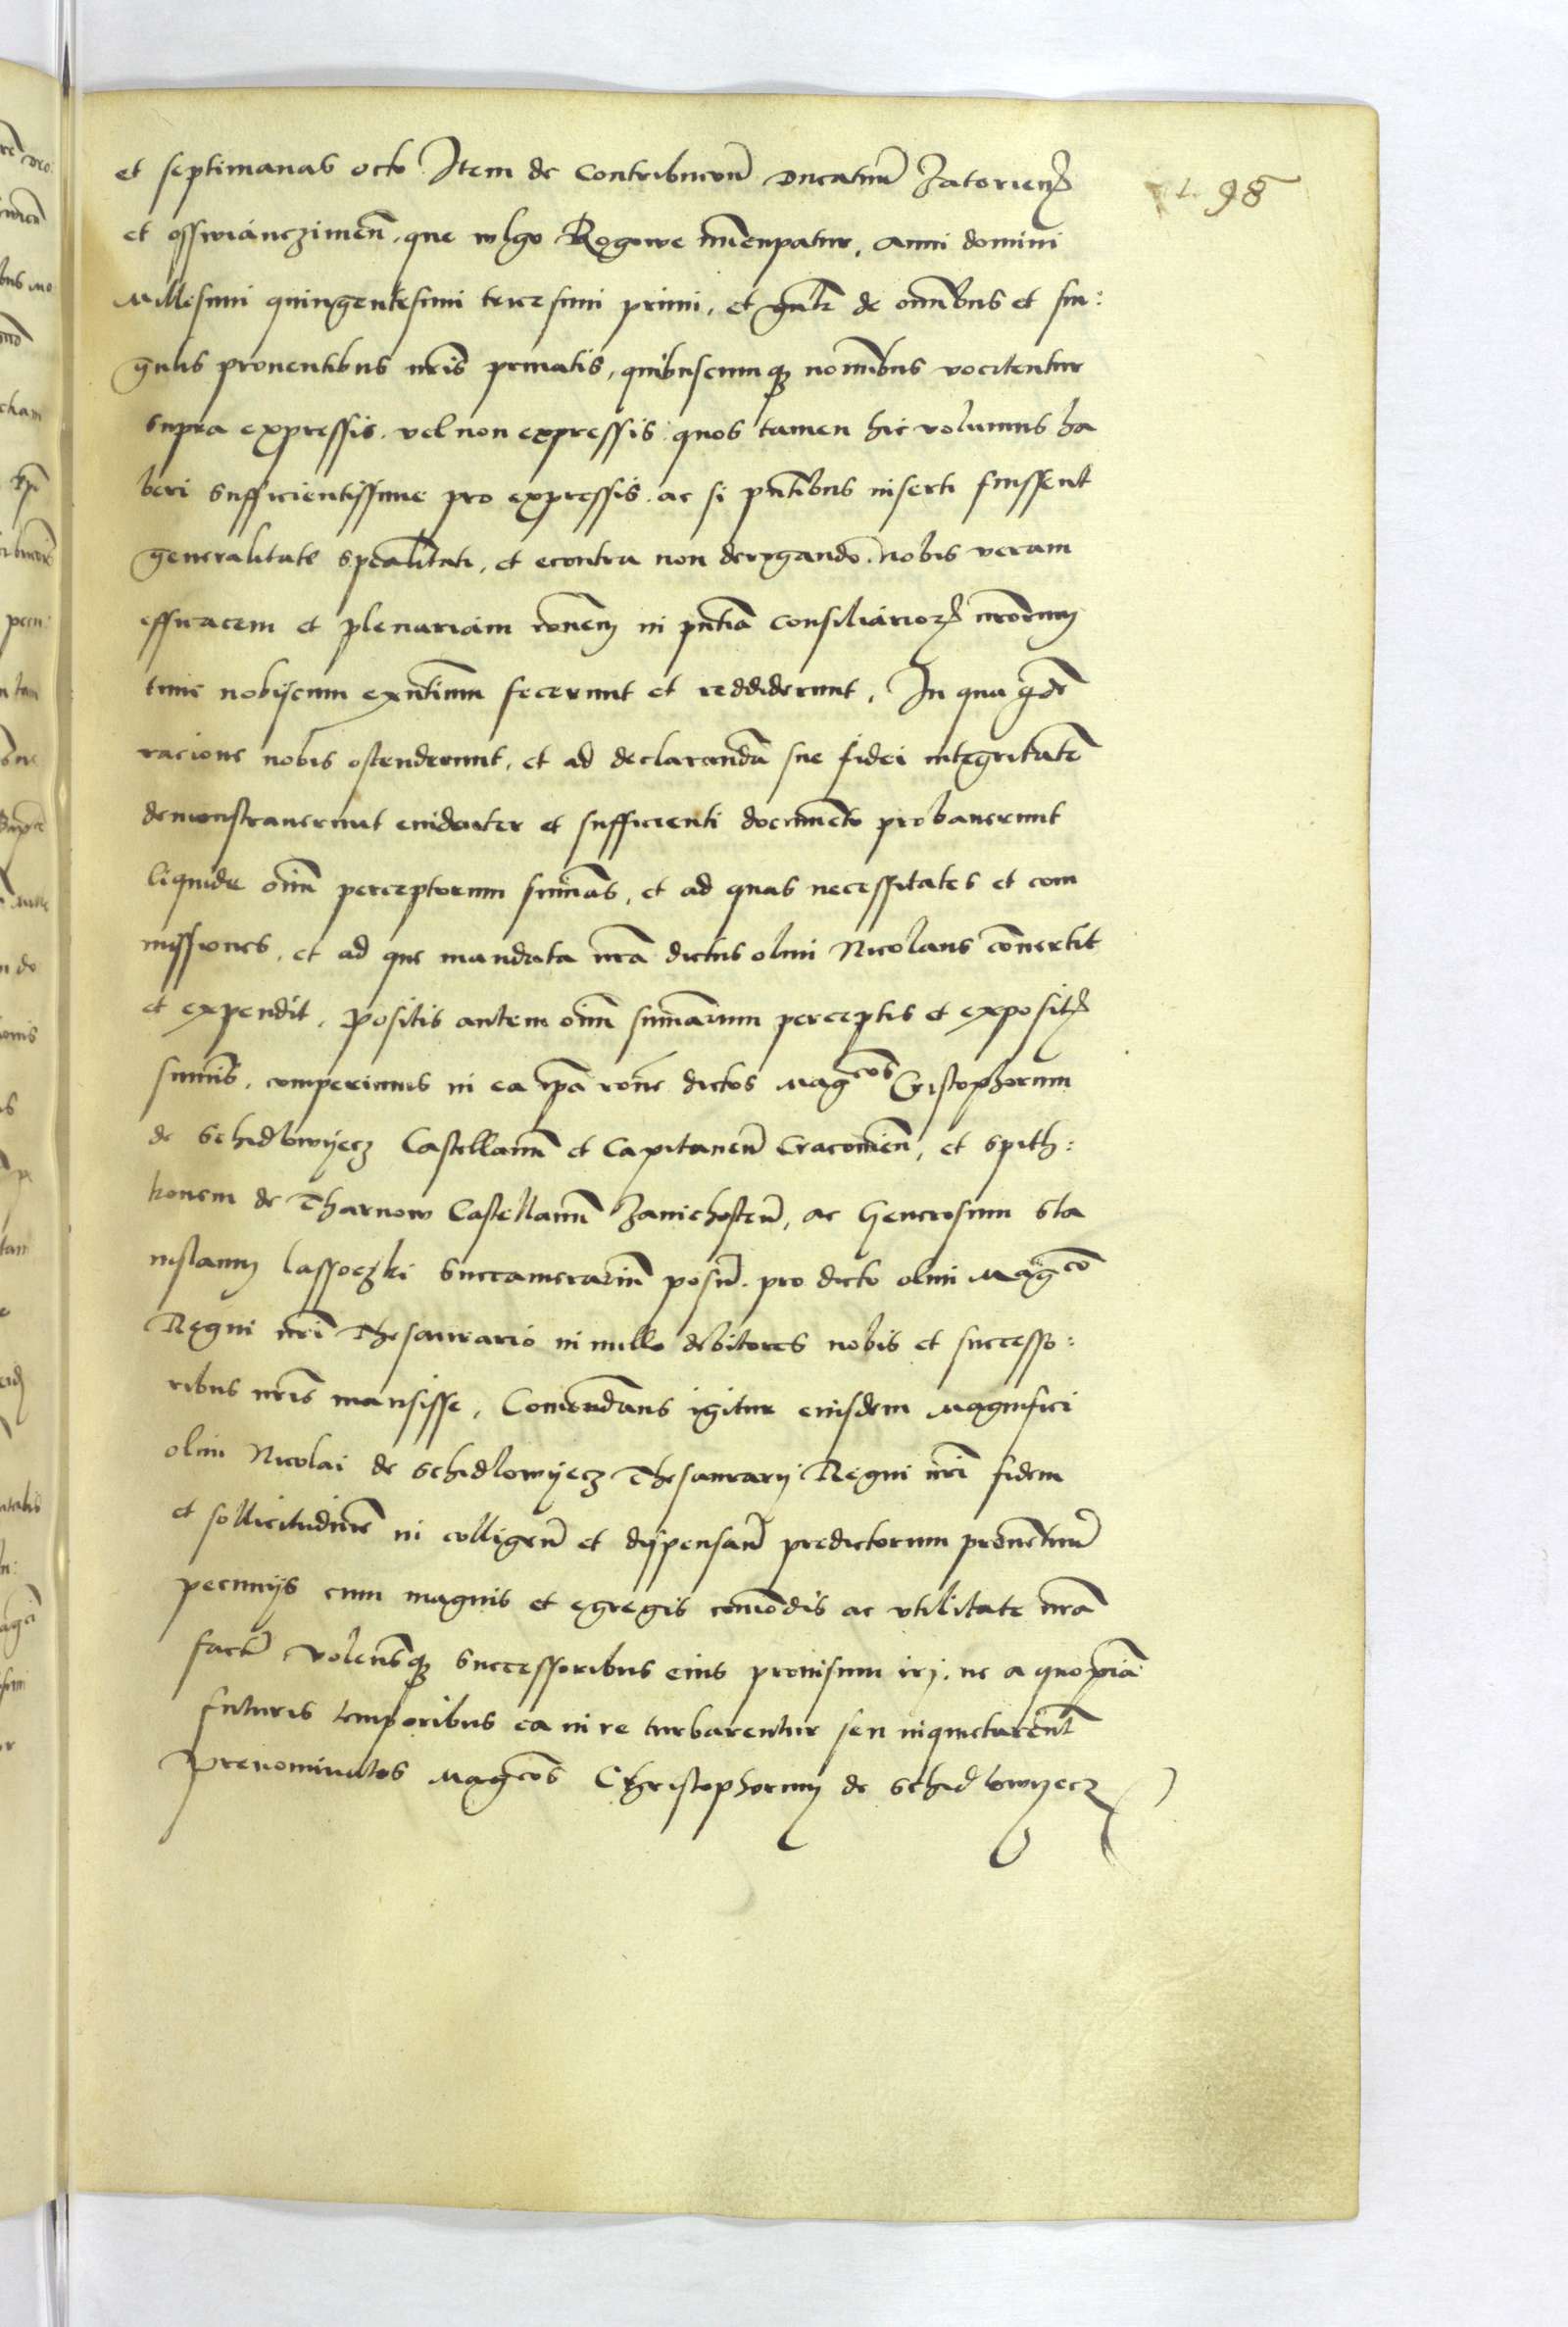 98
et septimanas octo Item de contribucoñ Ducatuū Zatorienꝭ
et osswiánczimeñ, que wlgo Rogowe nūcupatur, anni domini
Millesimi quingentesimi tricesimi primi, et gñalr de oñibus et sin:
gulis prouentibus nr̃is priuatis, quibuscunqꝫ noīnibus vocitentur
supra expressis. vel non expressis quos tamen hic volumus ha
beri sufficientissime pro expressis. ac si pñtibus inserti fuissent
generalitate spealitati, et econtra non derogando. nobis veram
efficacem et plenariam rõnem in pñtia consiliarioꝝ nr̃orum
tunc nobiscum exñtium fecerunt et reddiderunt, In qua
racione nobis ostenderunt, et ad declarandā sue fidei integritatē
demonstrauerunt euidenter et sufficienti documento probauerunt
liquide oīm perceptorum sum̃as, et ad quas necessitates et com
missiones, et ad que mandata nr̃a dictus olim Nicolaus cõuertit
et expendit, Positis autem oīm sum̃arum perceptis et expositꝭ
sum̃is, comperimus in ea ip̃a rõne dictos Mag^cos Cristophorum
de Schidlowyecz Castellanū et Capitaneū Cracouieñ, et Spith:
konem de Tharnow Castellanū Zawichosteñ, ac Generosum Sta
nislaum lassoczki Succamerariū posnañ. pro dicto olim Mag^co
Regni nr̃i Thesaurario in nullo debitores nobis et successo:
ribus nr̃is mansisse, Comendans igitur eiusdem Magnifici
olim Nicolai de Schidlowyecz Thesaurarij Regni nr̃i fidem
et sollicitudinē in colligeñ et dispensañ predictorum prouentuū
pecunijs cum magnis et egregis comodis ac vtilitate nr̃a
factꝭ, Volensqꝫ successoribus eius prouisum iri, ne a quopiā
futuris temporibus ea in re turbarentur seu inquietarent̃
Prenominatos Mag^cos Christophorum de Schidlowyecz